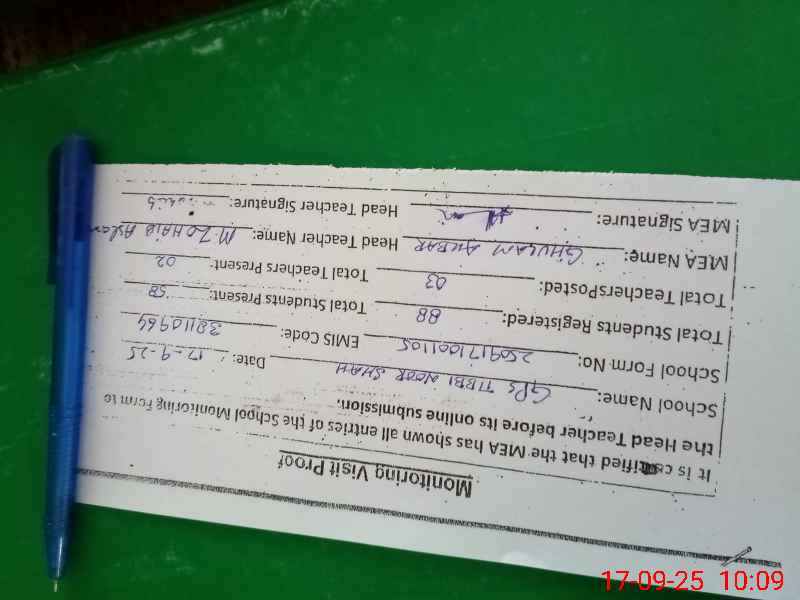 Monitoring Visit Proof
It is certified that the MEA has shown all entries of the School Monitoring Form to
the Head Teacher before its online submission.
School Name: GPS TIBBI NOOR SHAH Date: 17-9-25
School Form No: 2509171001105 EMIS Code: 38110964
Total Students Registered: 88 Total Students Present: 58
Total TeachersPosted: 03 Total Teachers Present: 02
MEA Name: GHULAM AKBAR Head Teacher Name: M. ZOHAIB Aslam
MEA Signature: Head Teacher Signature:
17-09-25 10:09